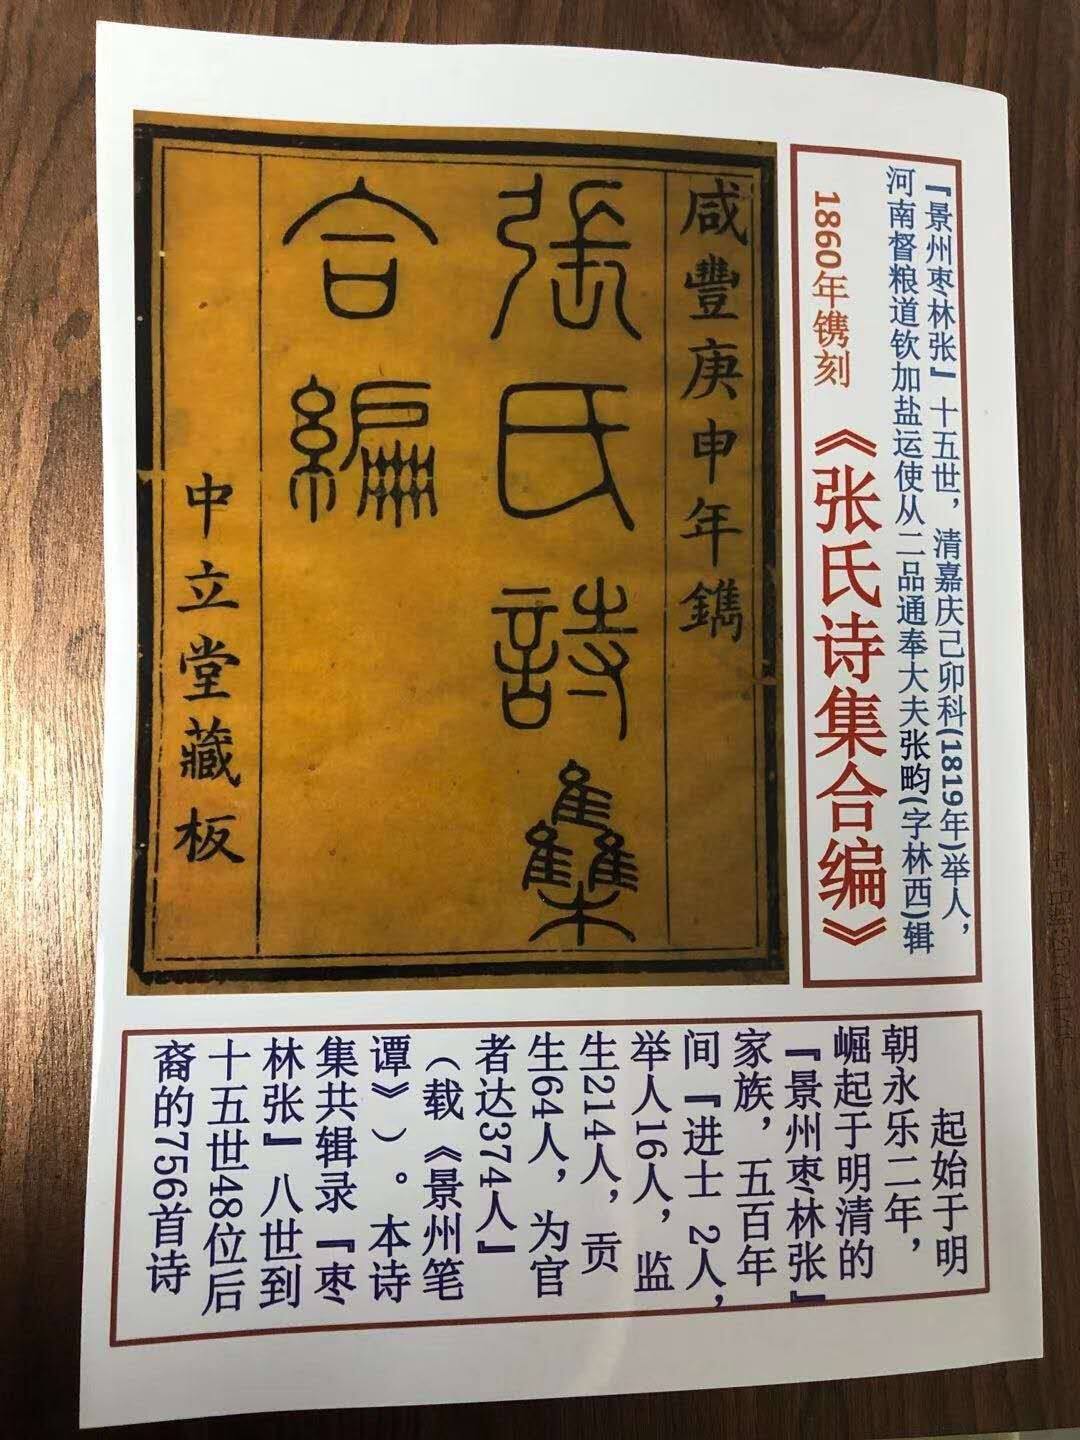 『景州枣林张』十五世，清嘉庆己卯科(1819年)举人，
河南督粮道钦加盐运使从二品通奉大夫张畇(字林西)辑
1860年镌刻 《张氏诗集合编》
咸豐庚申年鐫
張氏詩集
合編
中立堂藏板
起始于明
朝永乐二年，
崛起于明清的
『景州枣林张』
家族，五百年
间『进士 2人，
举人16人，监
生214人，贡
生64人，为官
者达374人』
（载《景州笔
谭》）。本诗
集共辑录『枣
林张』八世到
十五世48位后
裔的756首诗